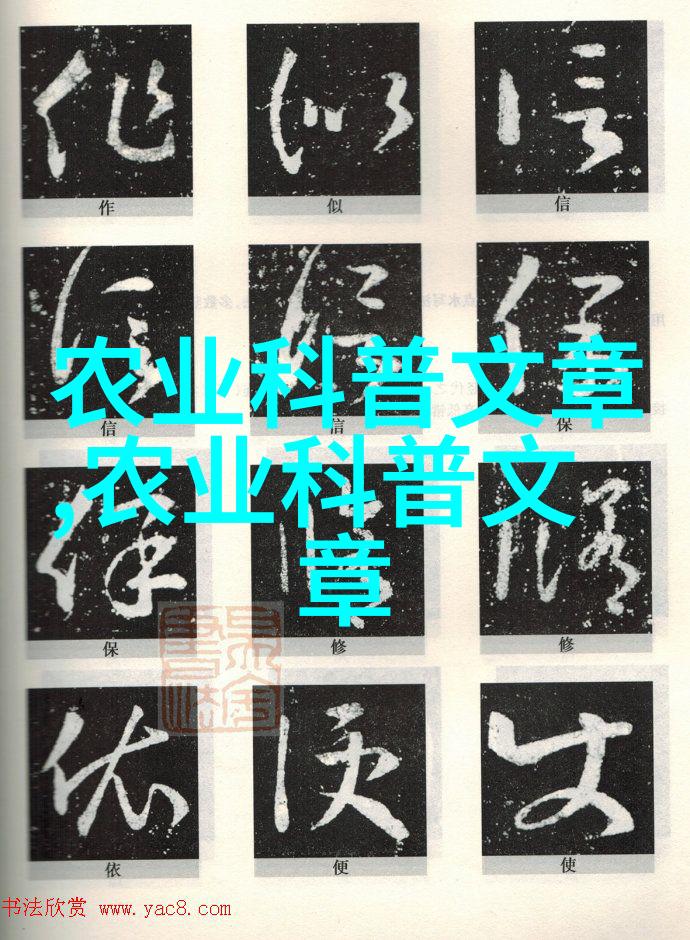 作 似 信
信 信 保
农业科普文章
,农业科普文
章
保 修 修
依 便 使
书法欣赏 www.yac8.com